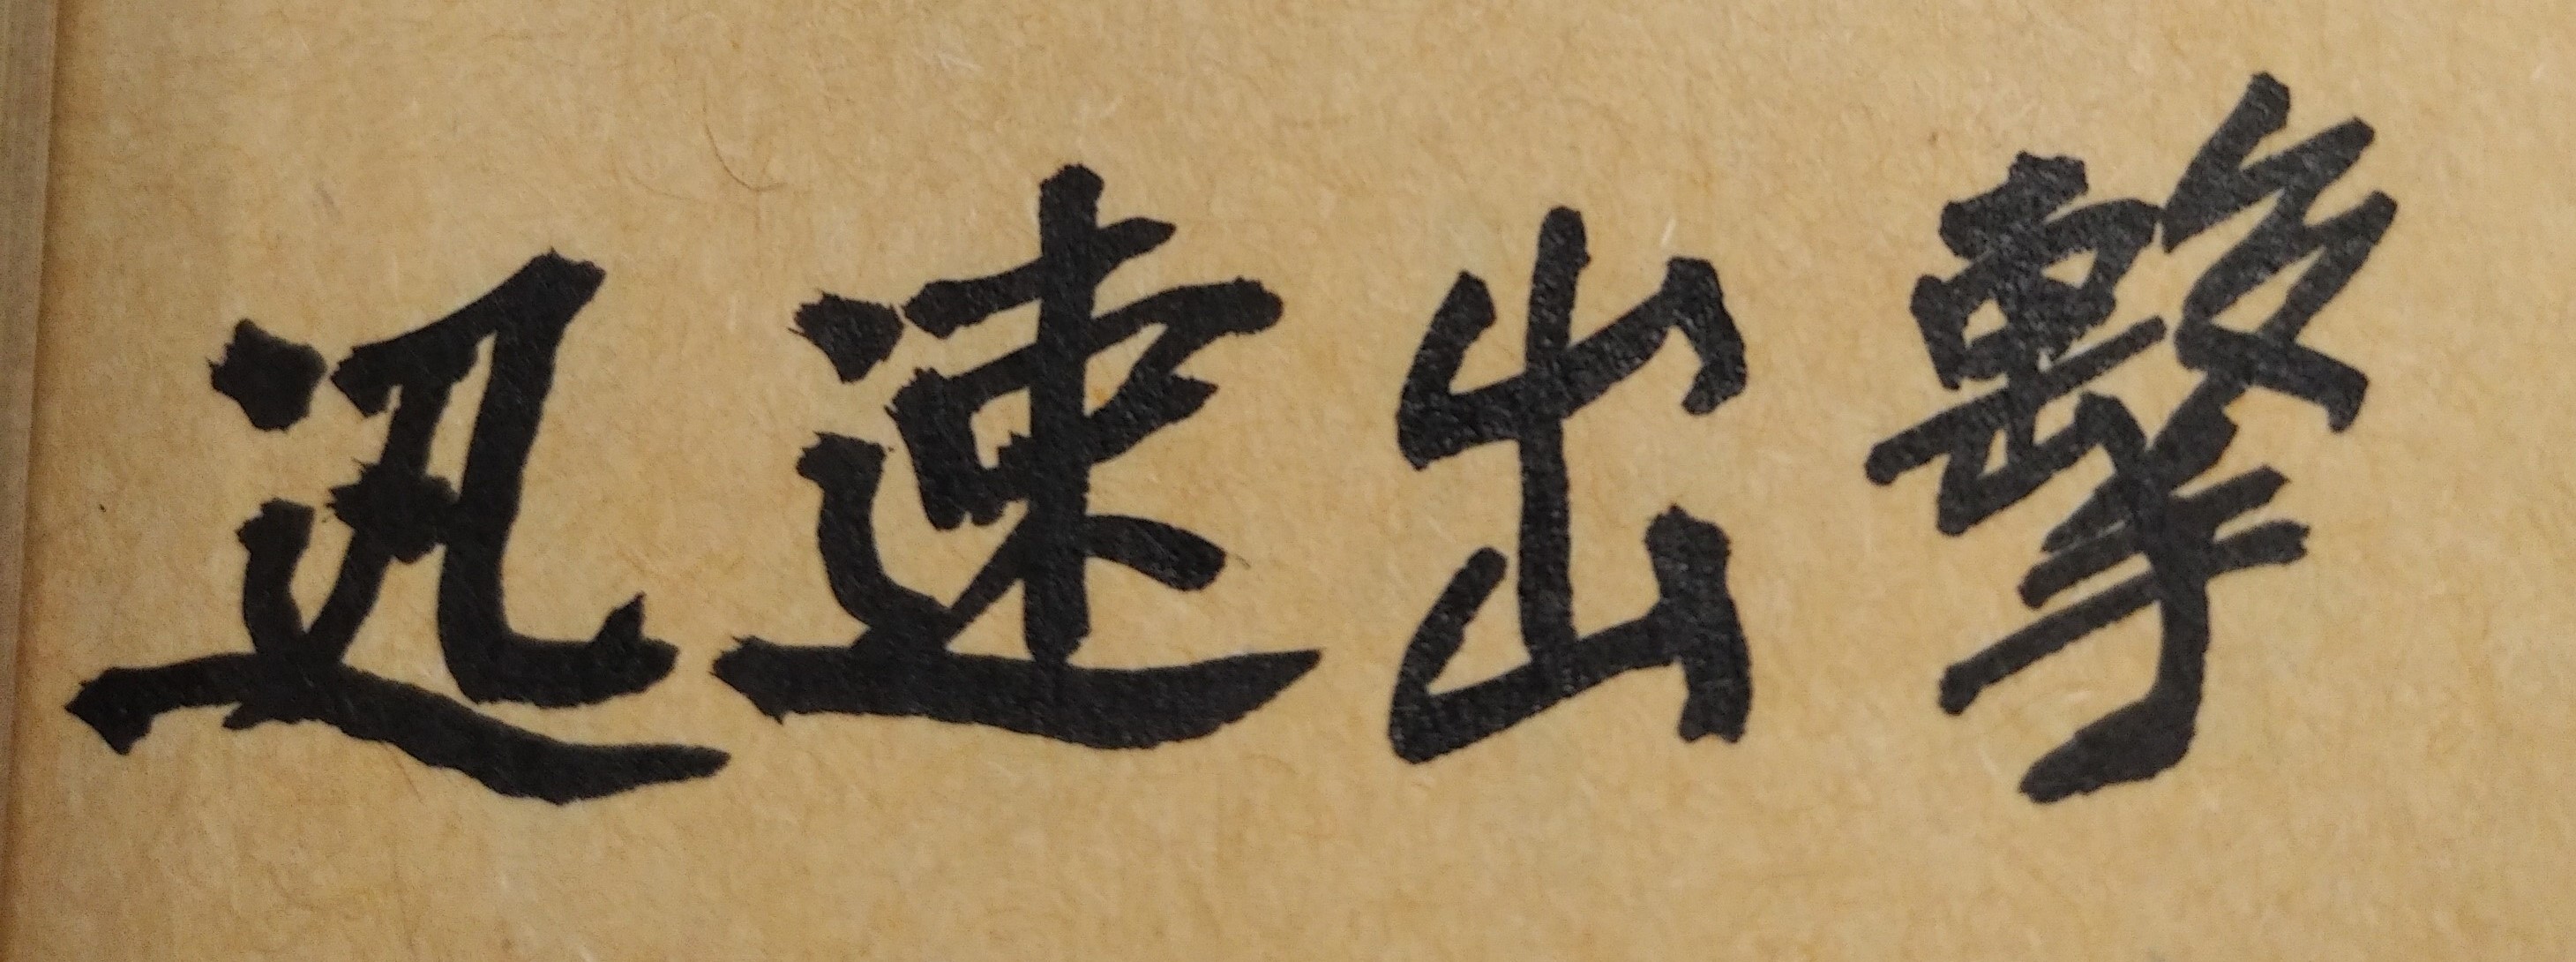 迅速出擊